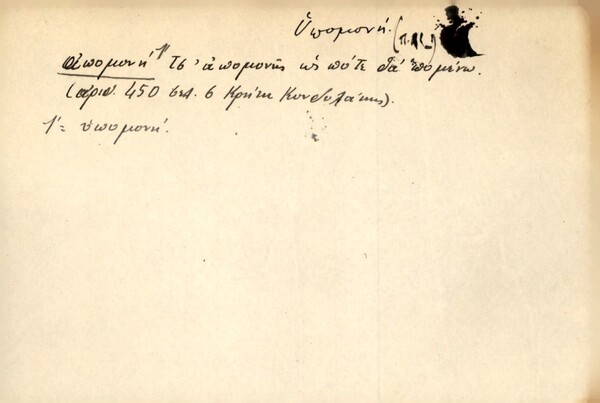 Ὑπομονή.
ἀπομονή¹ Τσ' ἀπομονῆς ὡς πότε θά 'πομένω.
(ἀριθ. 450 σελ. 6 Κρήτη Κονδυλάκης).
1 = ὑπομονή.